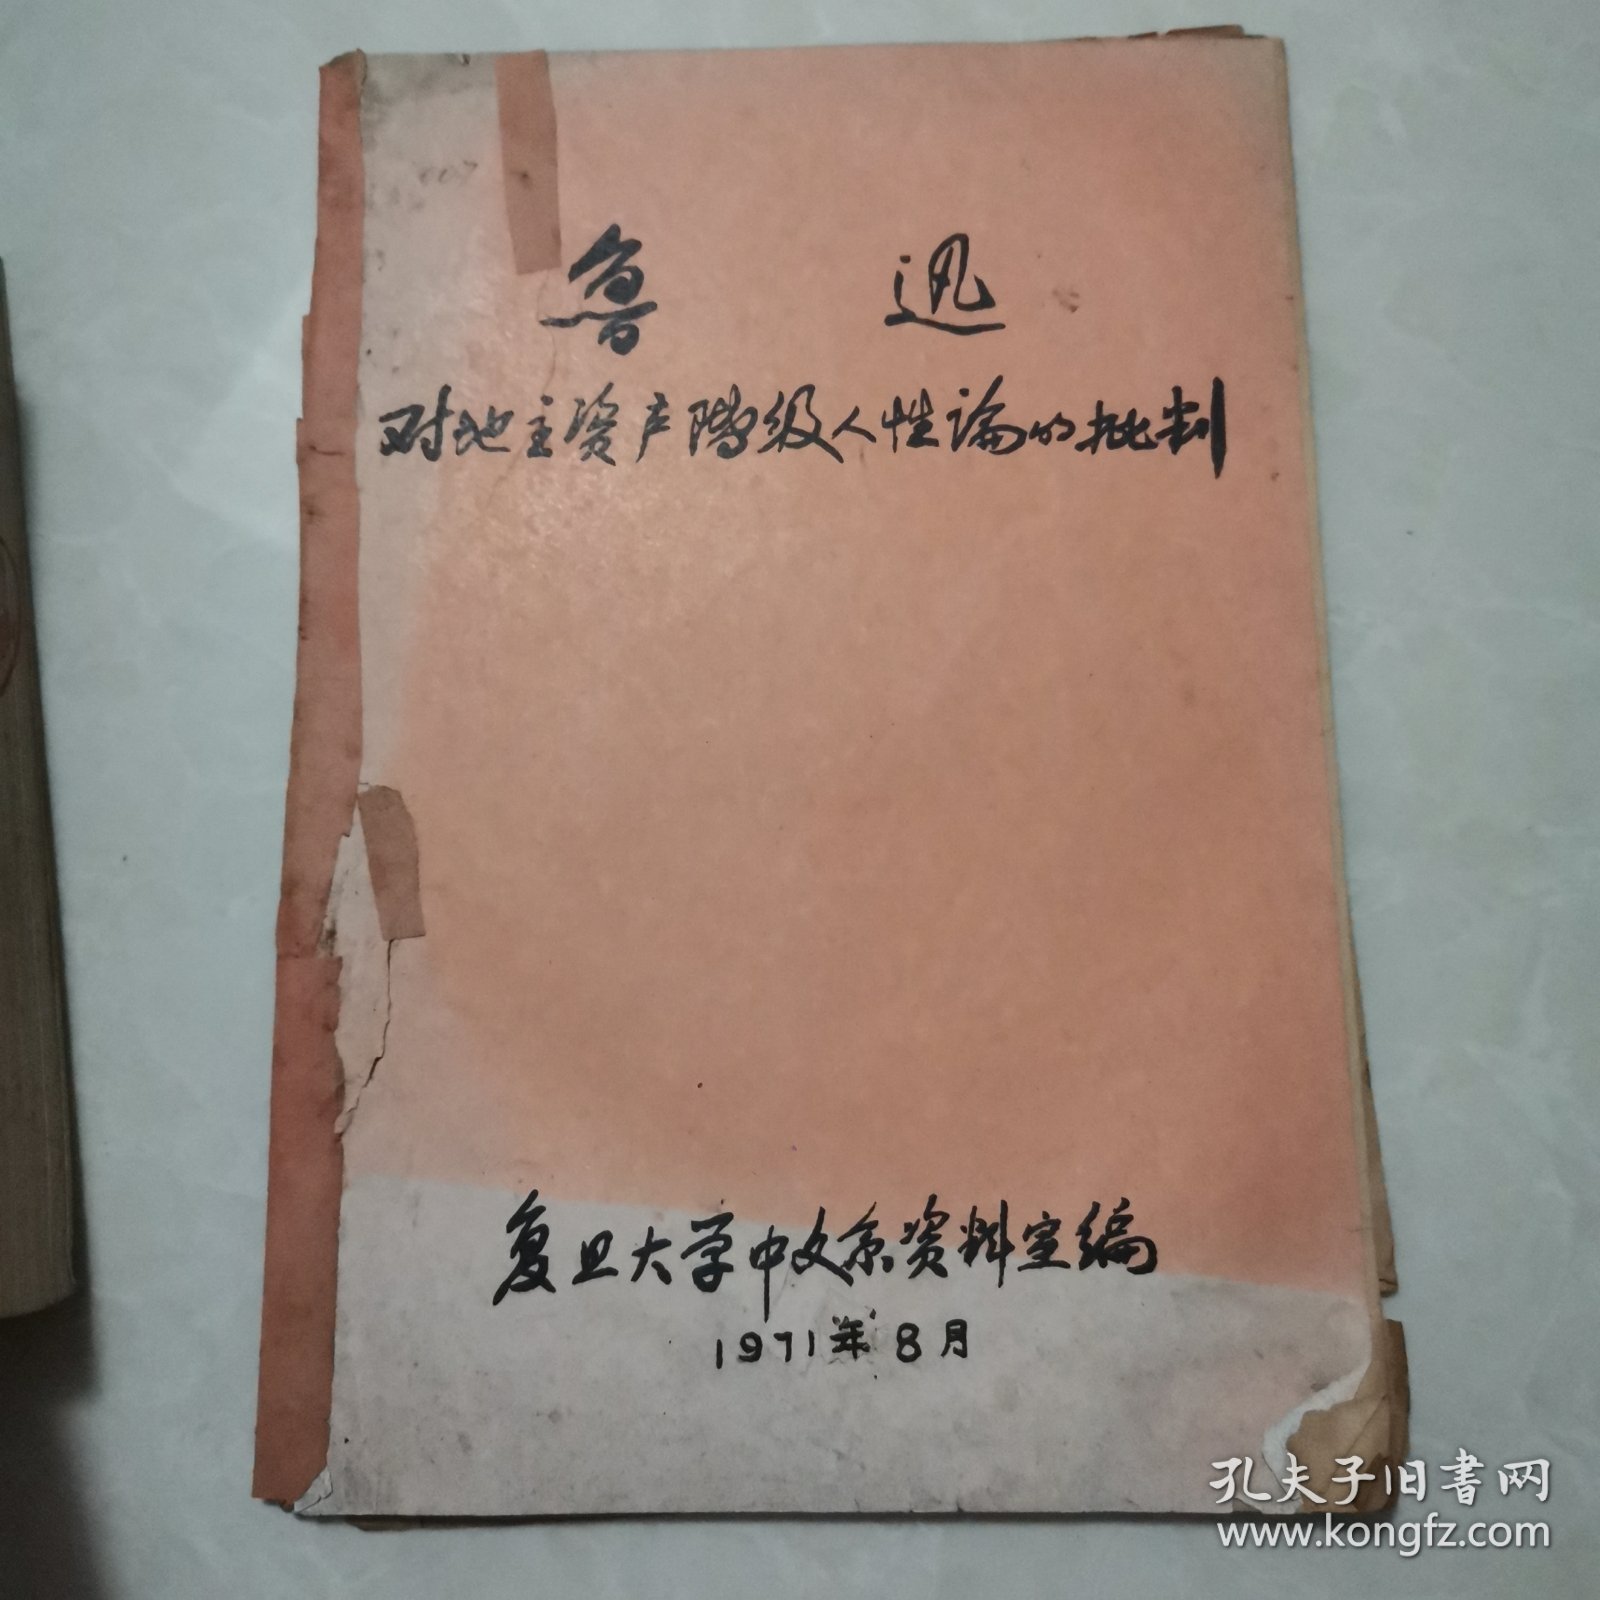 鲁迅
对地主资产阶级人性论的批判
复旦大学中文系资料室编
1971年8月
孔夫子旧書网
www.kongfz.com